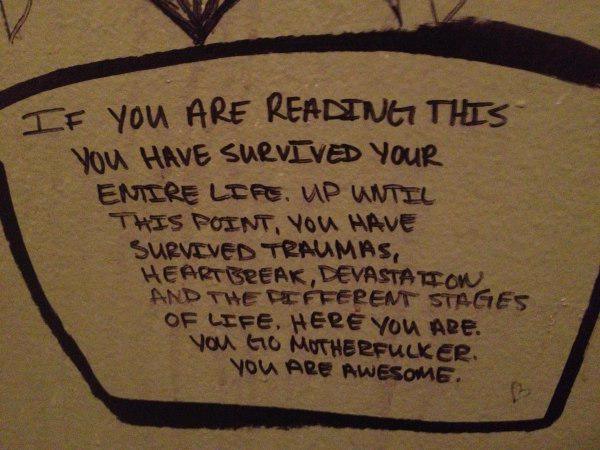 IF YOU ARE READING THIS
YOU HAVE SURVIVED YOUR
ENTIRE LIFE. UP UNTIL
THIS POINT, YOU HAVE
SURVIVED TRAUMAS,
HEARTBREAK, DEVASTATION
AND THE DIFFERENT STAGES
OF LIFE. HERE YOU ARE.
YOU GO MOTHERFUCKER.
YOU ARE AWESOME.